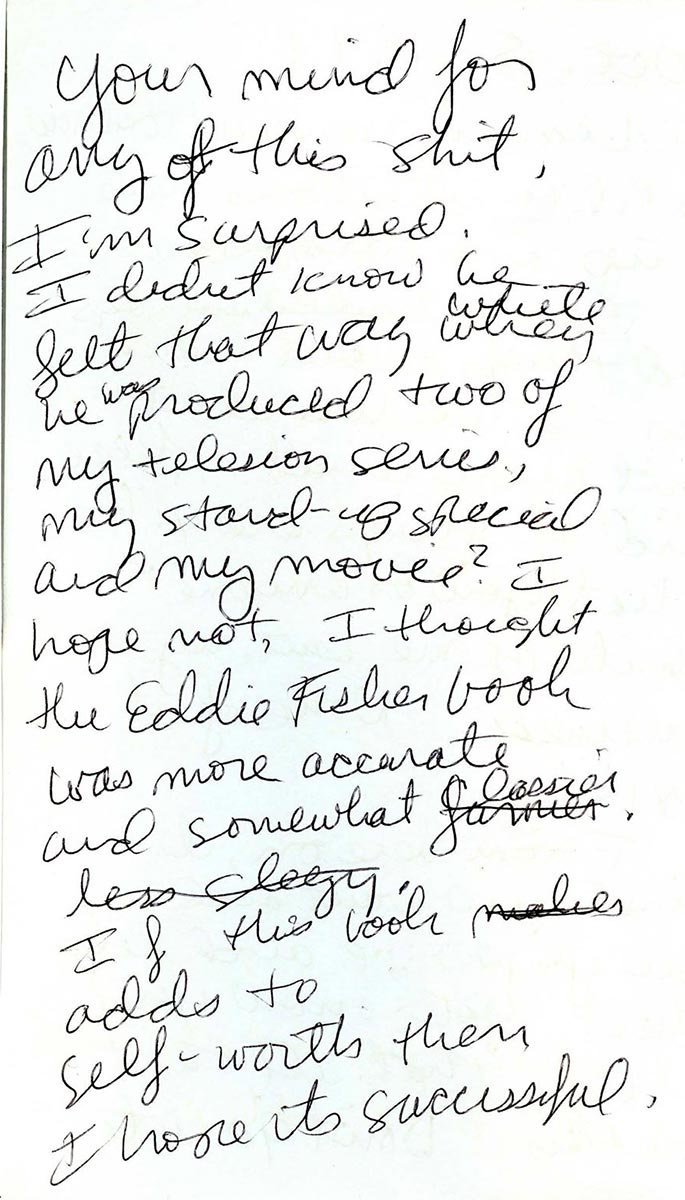 your mind for
any of this shit,
I'm surprised.
I didnt know he
felt that way when while
he was produced two of
my telesion series,
my stand-up special
and my movie? I
hope not, I thought
the Eddie Fisher book
was more accurate
and somewhat funnier classier.
less sleezy.
If this book makes
adds to
self-worth then
I hope its successful.